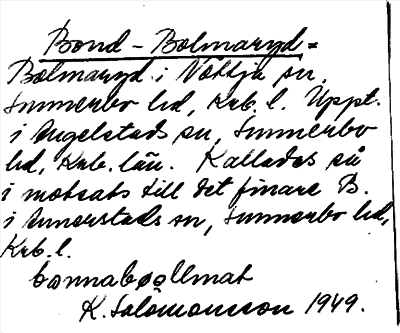 Bond-Bolmaryd =
Bolmaryd i Nöttja sn,
Sunnerbo hd, Krb. l. Uppt.
i Angelstads sn, Sunnerbo
hd, Krb. län. Kallades så
i motsats till det finare B.
i Annerstads sn, Sunnerbo hd,
Krb. l.
K. Salomonsson 1949.